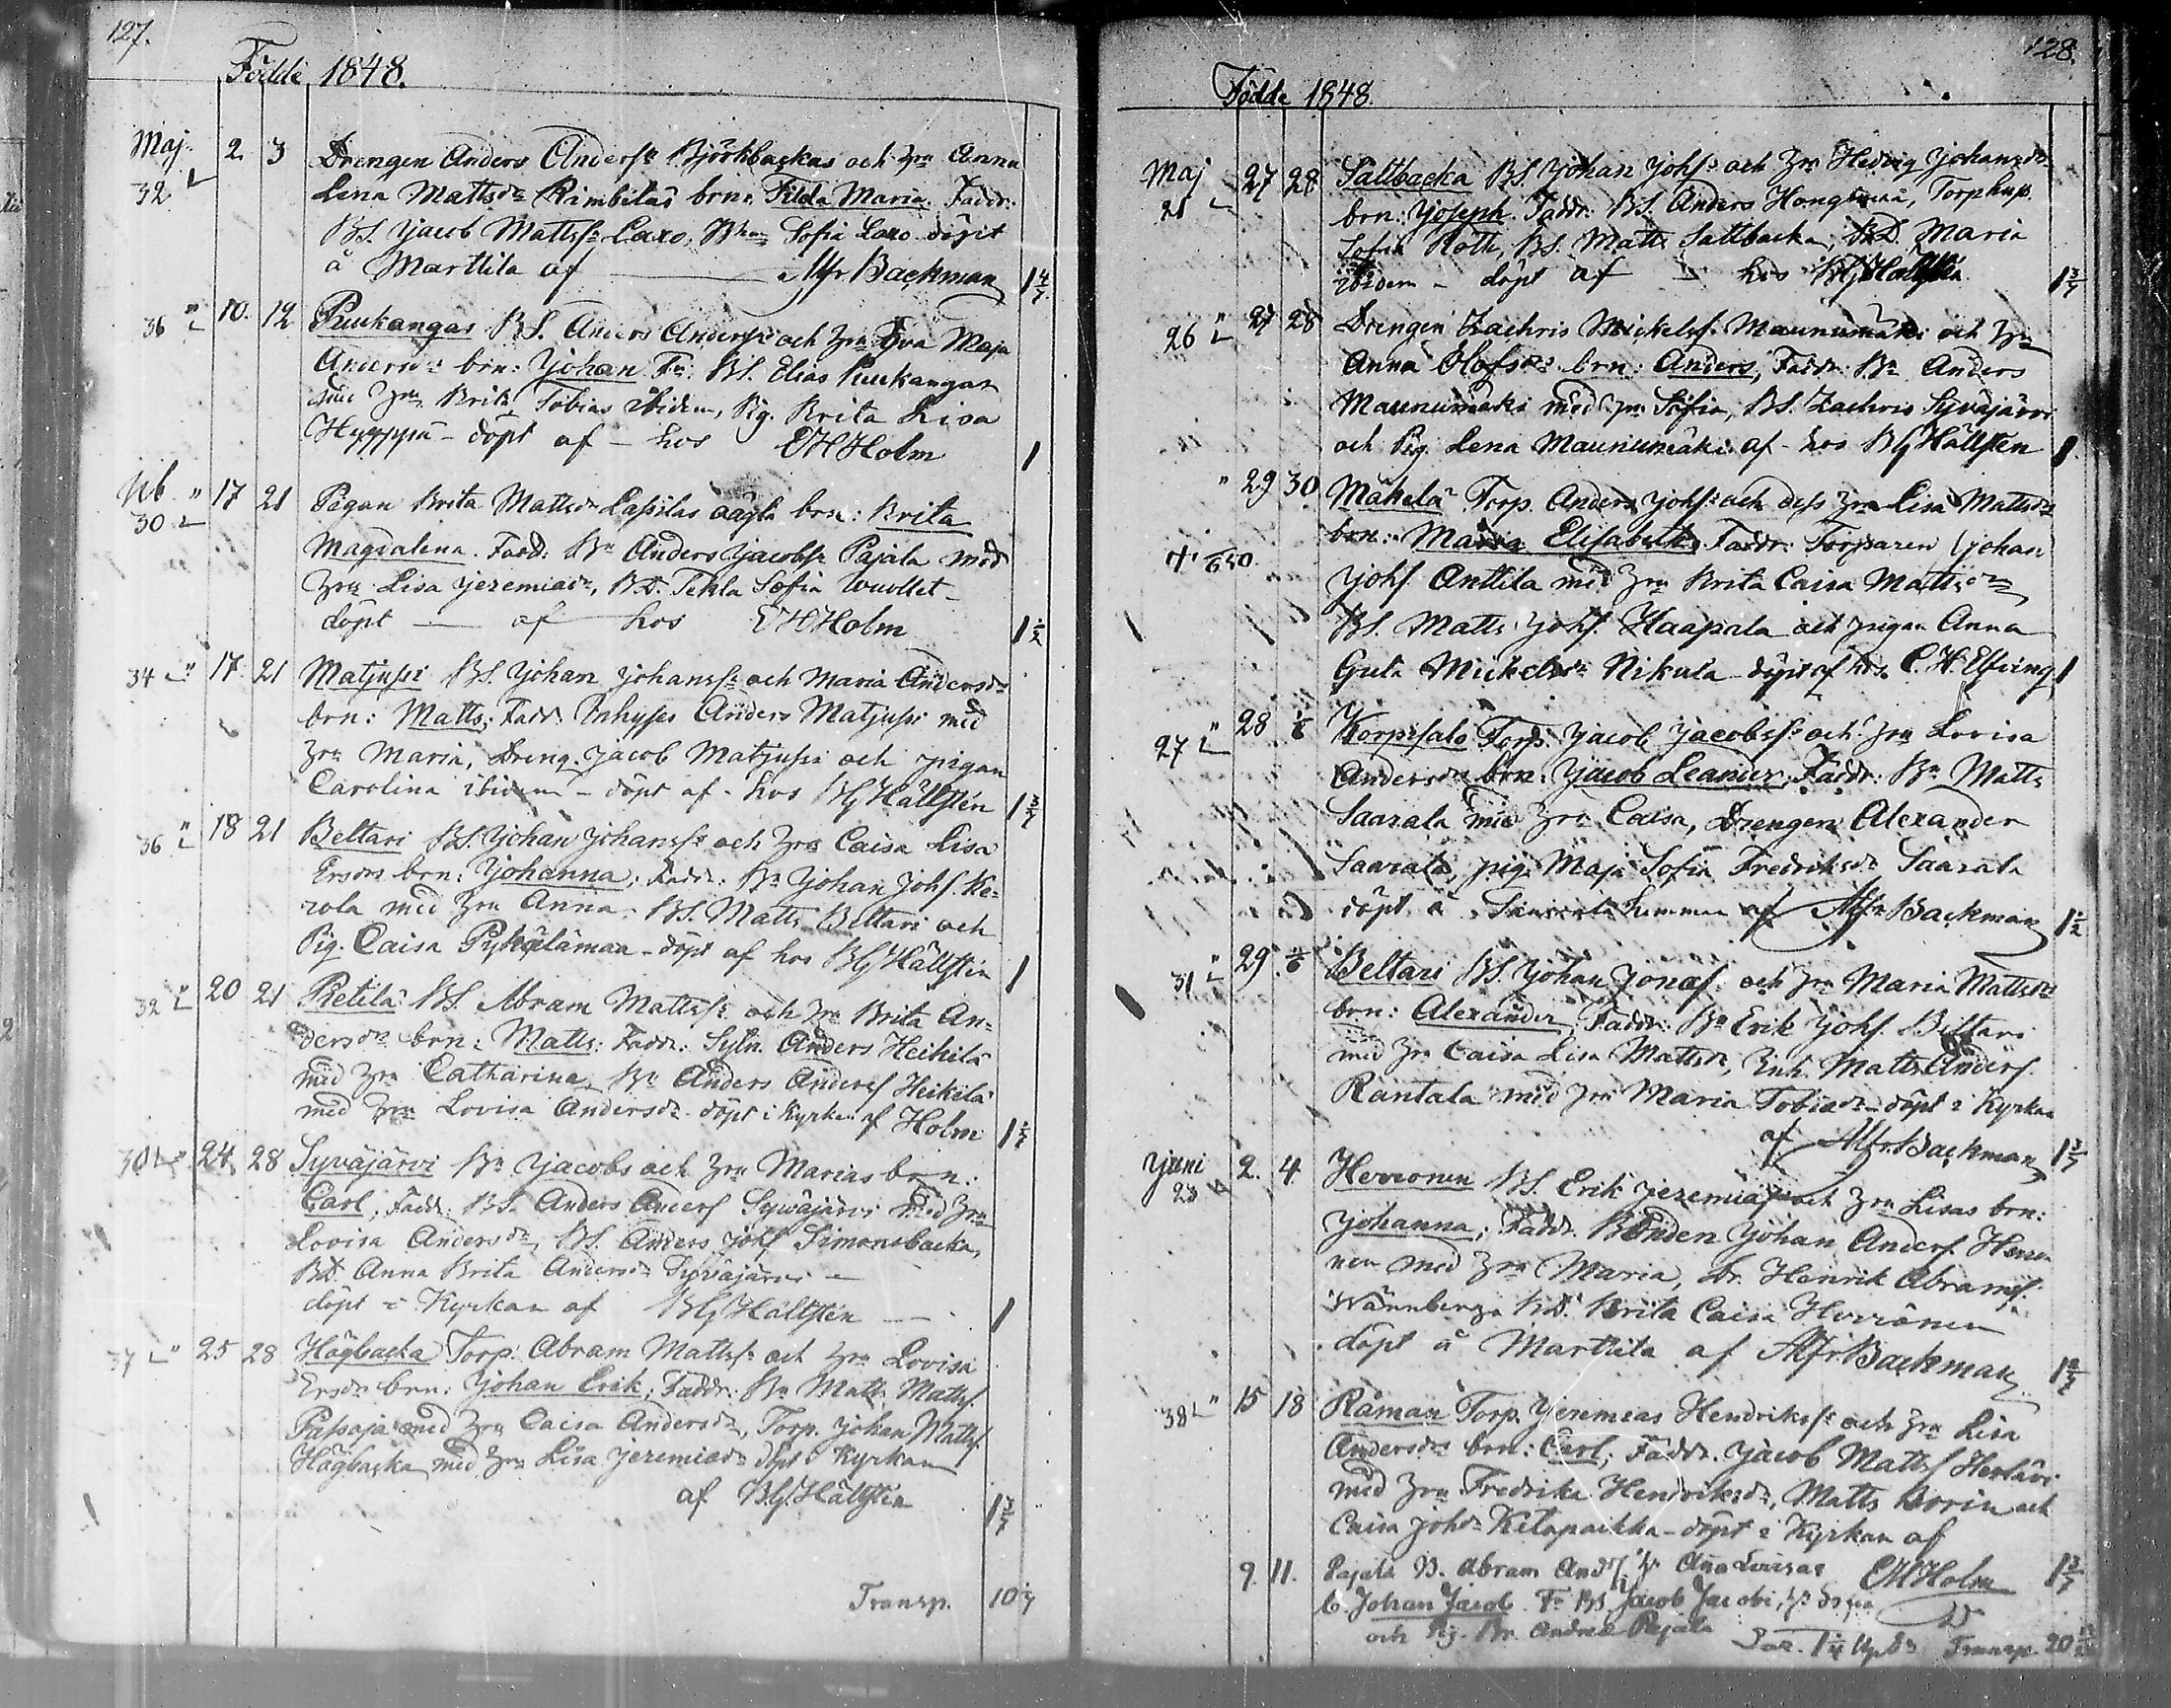 127.
Födde 1848.
Maj. 2. 3 Drengen Anders Anderss: Björkbackas och Hru Anna
32 Lena Mattsdr Rimbiläs brn: Filda Maria. Faddr:
BS. Jacob Mattss: Laxo, Sofia Laxo döpt
å Marttila af Alfr. Backman 1
36 " 10. 12 Puukangas BS. Anders Anderss: och Hru Eva Maja
Andersdr brn: Johan Fr: BS. Elias Puukangas
Hru Brita Tobias ibidem, Pig. Brita Lisa
Hyyppä - döpt af - hos EHHolm 1
" 17 21 Pigan Brita Mattsdr Lassilas oägta brn: Brita
30 Magdalena. Fadd: Bn Anders Jacobss: Pajala med
Hru Lisa Jeremiadr, BD. Tekla Sofia Wuollet -
döpt - af hos EHHolm 1 1/2
34 " 17. 21 Matjussi BS. Johan Johanss: och Maria Andersdr
brn: Matts; Fadd. Inhyses Anders Matjussi med
Hru Maria, Dreng. Jacob Matjussi och pigan
Carolina ibidem - döpt af - hos BG Hällsten 1 3/7
36 " 18 21 Beltari BS. Johan Johanss: och Hru Caisa Lisa
Ersdr brn: Johanna; Faddr: Bn Johan Johs. Ke=
rola med Hru Anna. BS. Matts Beltari och
Pig. Caisa Pykäläman - döpt af hos BG Hällsten 1
32 " 20 21 Pietilä BS. Abram Mattss: och Hru Brita An=
dersdr brn: Matts: Faddr: Sytn. Anders Heikilä
med Hru Catharina, Bn Anders Anders Heikilä
med Hru Lovisa Andersdr döpt i Kyrkan af Holm 1
30 " 24. 28 Syväjärvi Bn Jacobs och Hru Marias brn:
Carl; Faddr: BS. Anders Anders Sywäjärvi med Hru
Lovisa Andersdr, BS. Anders Johs Simonsbacka,
BD. Anna Brita Andersdr Syväjärvi -
döpt i Kyrkan af BG Hällsten - 1
37 " 25 28 Högbacka Torp. Abram Mattss: och Hru Lovisa
Ersdr brn: Johan Erik; Faddr: Bn Matts Matts.
Passoja med Hru Caisa Andersdr, Torp. Johan Matts.
Högbacka med Hru Lisa Jeremiadr döpt i Kyrkan
af BG. Hällsten 1 3/7
Transp. 10
128.
Födde 1848.
Maj 27 28 Saltbacka BS. Johan Johs: och Hru Hedvig Johansdr
brn: Joseph. Faddr: BS. Anders Torphup.
Sofia Roth, BS. Matts Saltbacka, BD. Maria
ibidem - döpt af - hos BG Hällsten 1 3/7
26 " 27 28 Drengen Zachris Mickelss. Maunumäki och Hru
Anna Olofsdr: brn: Anders; Faddr: Bn Anders
Maunumäki med Hru Sofia, BS. Zachris Syväjärvi
och Pig. Lena Maunumäki af - hos BG Hällsten 1
" 29 30 Mäkelä Torp. Anders Johs: och dess Hru Lisa Mattsdr
brn: Maria Elisabeth. Faddr: Torparen Johan
Johs. Anttila med Hru Brita Caisa Mattsdr
BS. Matts Johs. Haapala och pigan Anna
Greta Mickelsdr Nikula döpt af hos C. H. Elfving 1
27 " 28 1/6 Korpisalo Torp. Jacob Jacobss: och Hru Lovisa
Andersdr brn: Jacob Leander; Faddr: Bn Matts
Saarala med Hru Caisa, Drengen Alexander
Saarala, pig. Maja Sofia Fredriksdr Saarala
döpt å Saarala hemman af Alfr Backman 1 1/2
31 " 29 Beltari BS. Johan Jonas. och Hru Maria Mattsdr
brn: Alexander; Faddr: Bn Erik Johs. Biltari
med Hru Caisa Lisa Mattsdr, Inh. Matts Anders.
Rantala med Hru Maria Tobiadr - döpt i Kyrkan
af Alfr. Backman 1 3/7
Juni 2. 4 Herronen BS. Erik Jeremias och Hru Lisas brn:
Johanna; Faddr. Bonden Johan Anders. Herro
nen med Hru Maria, Dr. Henrik Abrams.
BD. Brita Caisa Herronen
döpt å Marttila af Alfr. Backman
38 " 15 18 Råman Torp. Jeremias Hendrikss: och Hru Lisa
Andersdr brn: Carl; Faddr. Jacob Matts
med Hru Fredrika Hendriksdr, Matts Borin och
Caisa Johdr Kitapaikka - döpt i Kyrkan af
EHHolm 1 3/7
9. 11. Pajala B. Abram And. Hr Ana Lovisas
b. Johan Jacob. Fr BS Jacob Jacobi, Hr Sofia
och Pig. Br. Andrea Pajala
Transp. 20